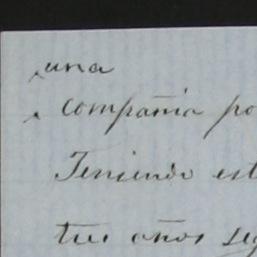 una
compañia po
Teniendo est
tres años seg